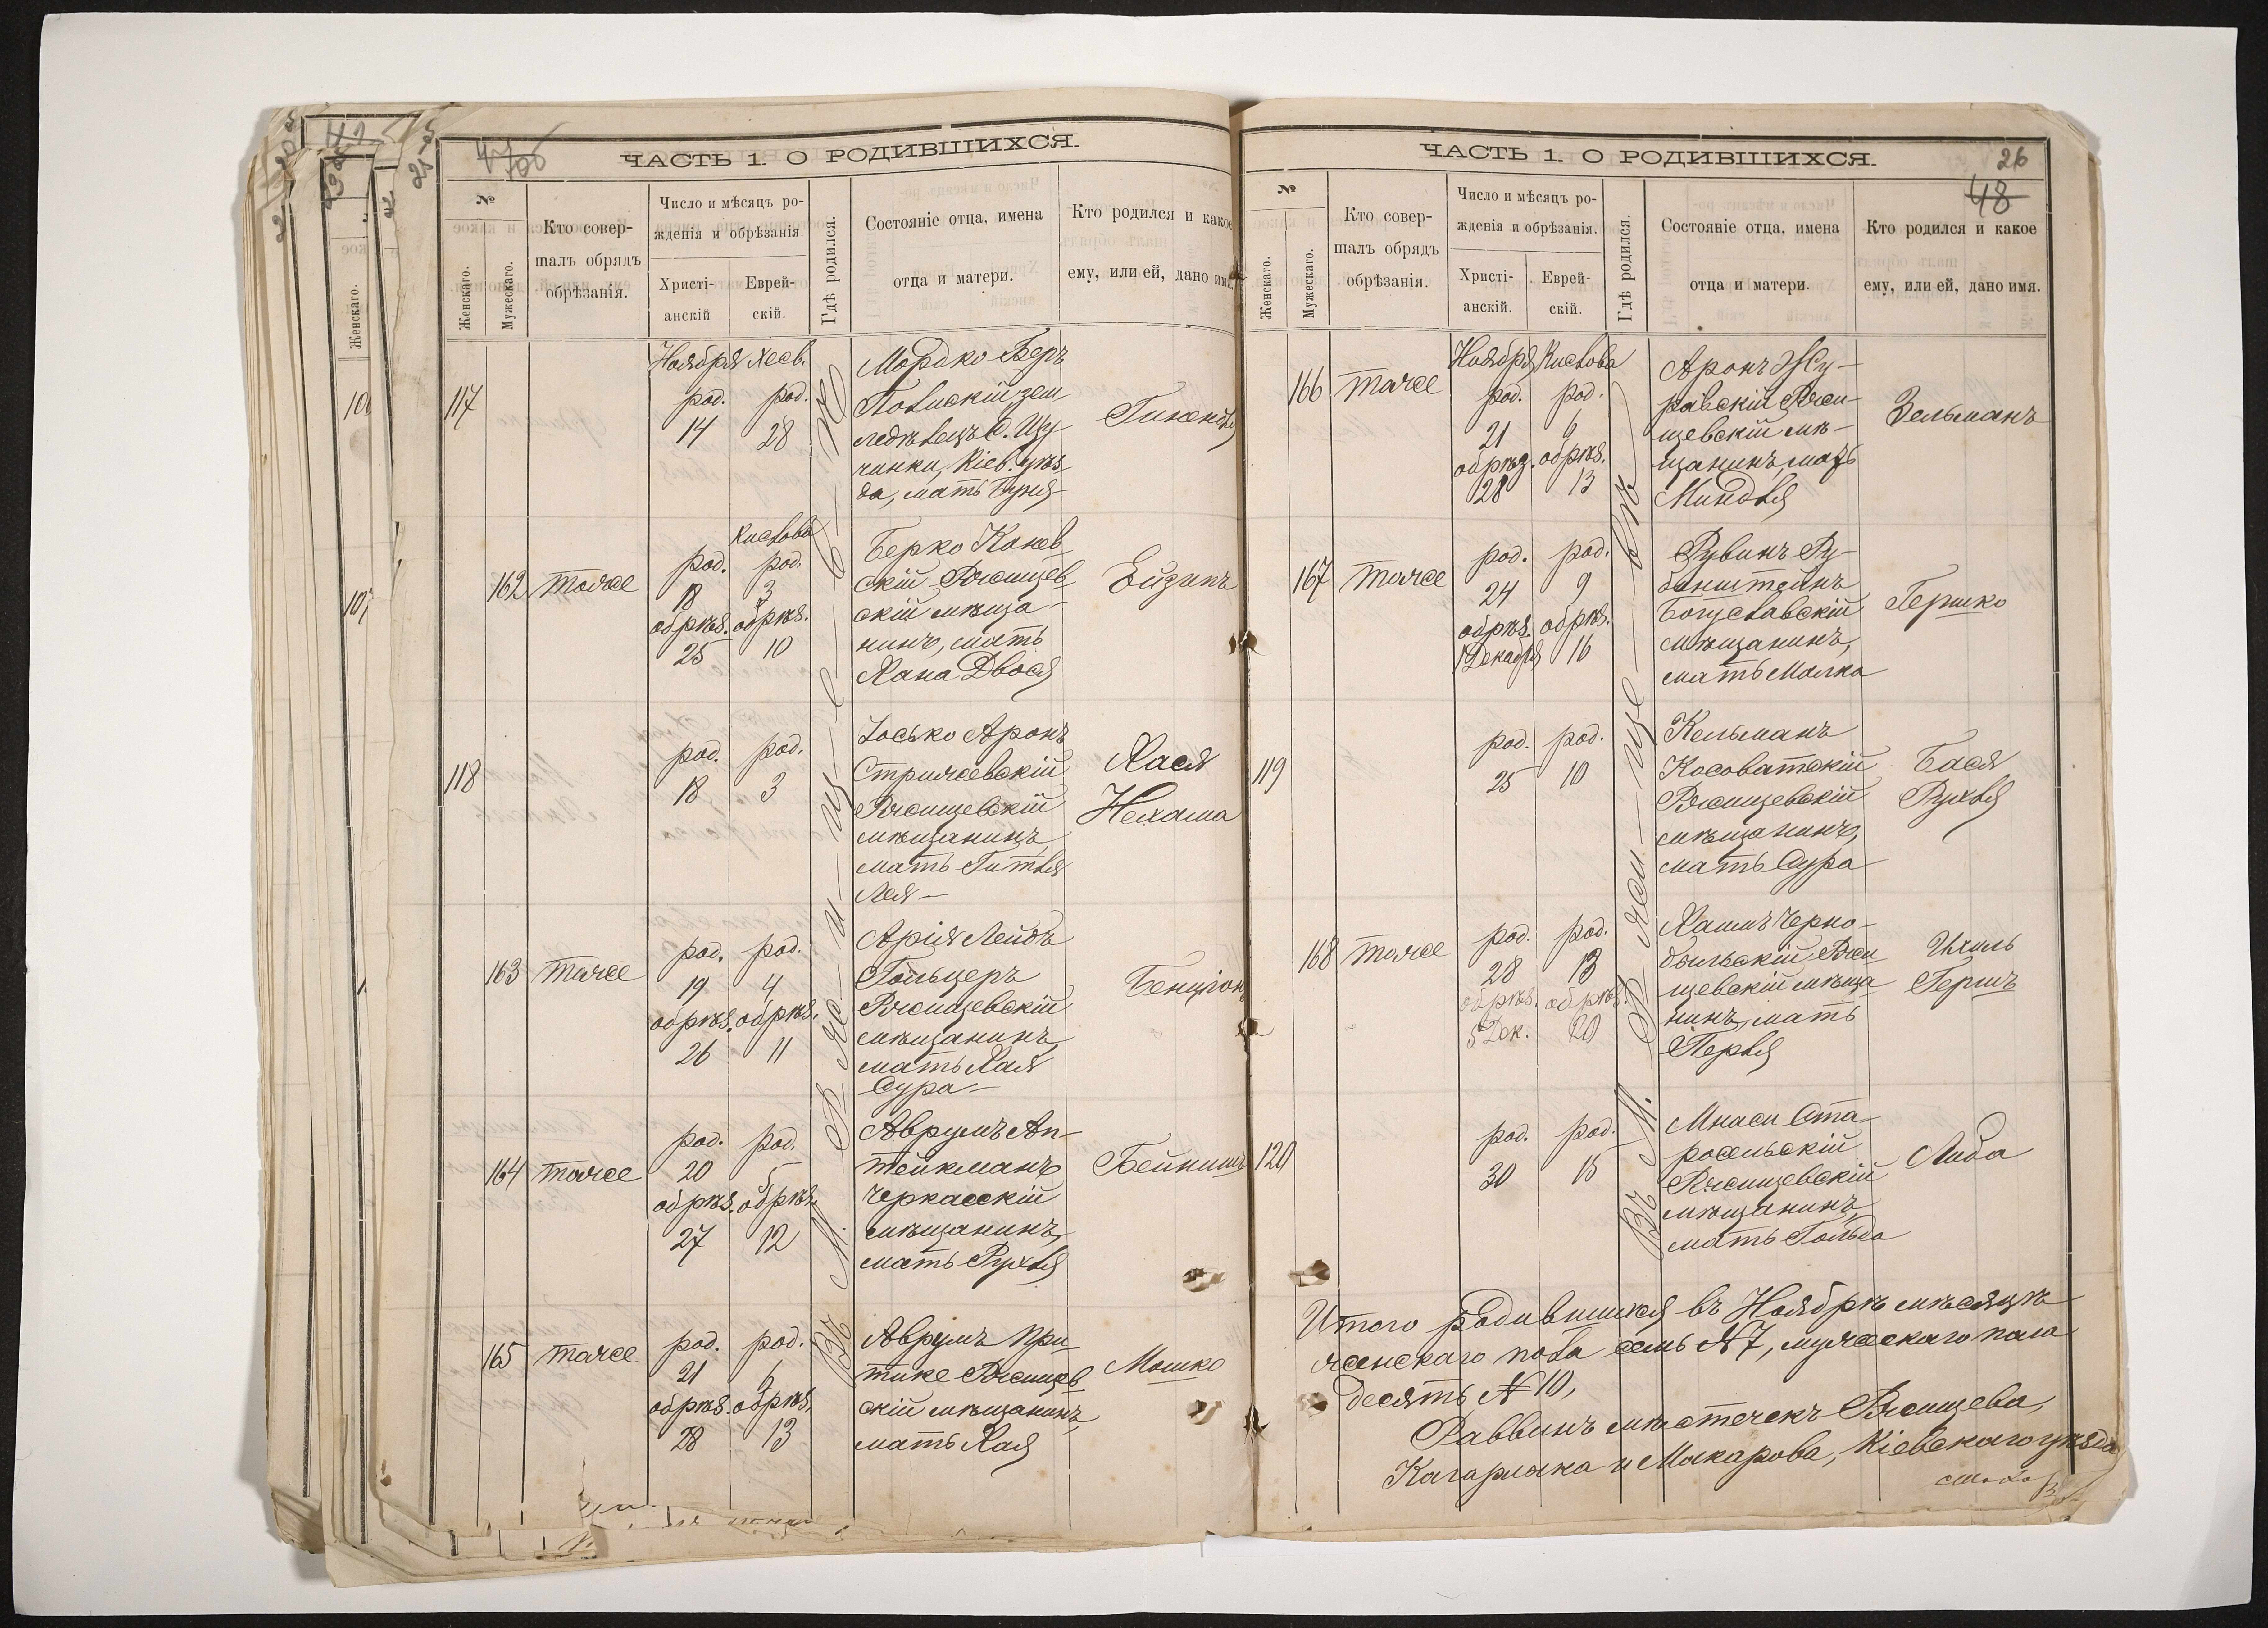 ЧАСТЬ 1. О РОДИВШИХСЯ.
№
Женскаго.
Мужескаго.
Кто совер-
шалъ обрядъ
обрѣзанія.
Число и мѣсяцъ ро-
жденія и обрѣзанія.
Христі-
анскій
Еврей-
скій.
Гдѣ родился.
Состояніе отца, имена
отца и матери.
Кто родился и какое
ему, или ей, дано имя.
117
Ноября Хесв.
род. род.
14 28
Мордко Беръ
земле-
дѣлецъ
Кіев. уѣз
да, мать
162 тоже
Кислова
род. род.
18 3
обрѣз. обрѣз.
25 10
Берко Канев
скій Ржищев
скій мѣща-
нинъ, мать
Хана Двося
Ейзикъ
118
род. род.
18 3
Іосько Аронъ
Стрижевскій
Ржищевскій
мѣщанинъ,
мать Гитля
Лея
Хася
Нехама
163 тоже
род. род.
19 4
обрѣз. обрѣз.
26 11
Арія Лейбъ
Гольцеръ
Ржищевскій
мѣщанинъ,
мать Хая
Сура
Бенціонъ
164 тоже
род. род.
20 5
обрѣз. обрѣз.
27 12
Аврумъ Ап-
тейкманъ
Черкасскій
мѣщанинъ,
мать Рухля
Бейнишъ
165 тоже
род. род.
21 6
обрѣз. обрѣз.
28 13
Аврумъ При
тике Ржищев
скій мѣщанинъ,
мать Хая
Мошко
Въ М. Ржищевѣ
ЧАСТЬ 1. О РОДИВШИХСЯ.
26
48
№
Женскаго.
Мужескаго.
Кто совер-
шалъ обрядъ
обрѣзанія.
Число и мѣсяцъ ро-
жденія и обрѣзанія.
Христі-
анскій.
Еврей-
скій.
Гдѣ родился.
Состояніе отца, имена
отца и матери.
Кто родился и какое
ему, или ей, дано имя.
166 тоже
Ноября Кислова
род. род.
21 6
обрѣз. обрѣз.
28 13
Аронъ Жу-
равскій Ржи-
щевскій мѣ-
щанинъ, мать
Миндля
Зельманъ
167 тоже
род. род.
24 9
обрѣз. обрѣз.
1 Декабря 16
Рувинъ Ру-
бинштейнъ
Богуславскій
мѣщанинъ,
мать Малка
Гершко
119
род. род.
25 10
Кельманъ
Косоватскій
Ржищевскій
мѣщанинъ,
мать Сура
Бася
Рухля
168 тоже
род. род.
28 13
обрѣз. обрѣз.
5 Дек. 20
Хаимъ Черно-
быльскій Ржи
щевскій мѣща
нинъ, мать
Перля
Ихиль
Гершъ
120
род. род.
30 15
Мнаси Ста
росельскій
Ржищевскій
мѣщанинъ,
мать Гольда
Либа
Въ М. Ржищевѣ
Итого родившихся въ Ноябрѣ мѣсяцѣ
женскаго пола семь № 7, мужескаго пола
десять № 10,
Раввинъ мѣстечекъ Ржищева,
Кагарлика и Макарова, Кіевскаго уѣзда